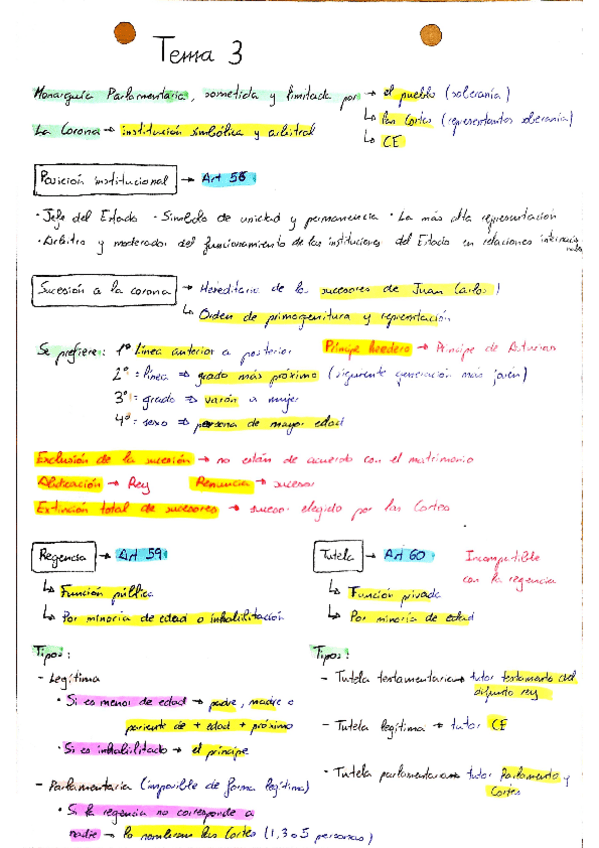 Tema 3
Monarquía Parlamentaria, sometida y limitada por → el pueblo (soberanía)
↳ las Cortes (representantes soberanía)
↳ CE
La Corona → institución simbólica y arbitral
Posición institucional → Art 56:
· Jefe del Estado · Símbolo de unidad y permanencia · La más alta representación
· Árbitro y moderador del funcionamiento de las instituciones del Estado en relaciones internacionales
Sucesión a la corona → Hereditaria de los sucesores de Juan Carlos I
↳ Orden de primogenitura y representación
Se prefiere: 1º Línea anterior a posterior Príncipe heredero → Príncipe de Asturias
2º: línea ⇒ grado más próximo (siguiente generación más joven)
3º: grado ⇒ varón a mujer
4º: sexo ⇒ persona de mayor edad
Exclusión de la sucesión → no están de acuerdo con el matrimonio
Abdicación → Rey Renuncia → sucesor
Extinción total de sucesores → sucesor elegido por las Cortes
Regencia → Art 59:
↳ Función pública
↳ Por minoría de edad o inhabilitación
Tipos:
- Legítima
· Si es menor de edad → padre, madre o
pariente de + edad + próximo
· Si es inhabilitado → el príncipe
- Parlamentaria (imposible de forma legítima)
· Si la regencia no corresponde a
nadie → lo nombran las Cortes (1, 3 o 5 personas)
Tutela → Art 60: Incompatible
con la regencia
↳ Función privada
↳ Por minoría de edad
Tipos:
- Tutela testamentaria → tutor testamento del
difunto rey
- Tutela legítima → tutor CE
- Tutela parlamentaria → tutor Parlamento y
Cortes